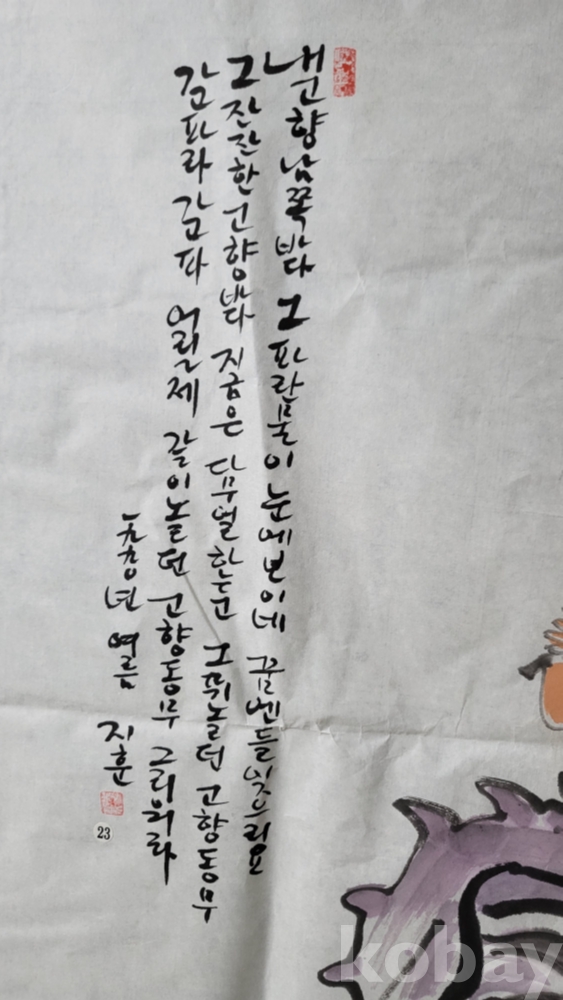 내고향남쪽 바다 그 파란물이 눈에보이네 꿈엔들잊으리요
그잔잔한고향바다 지금은 그뛰놀던 고향동무
감파라 감파 어릴제 같이놀던 고향동무 그리워라
년 여름 지훈
23
kobay